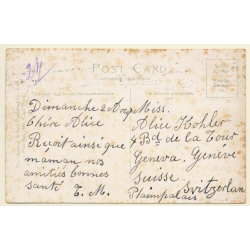 POST CARD
Dimanche 2 Aoy
Chère Alice
Reçoit ainsi que
maman, nos
amitiés bonnes
santé T. M.
Miss.
Alice Kohler
4 Bte de la Tour
Geneva. Genève
Suisse
Svitzerlan
Plainpalais